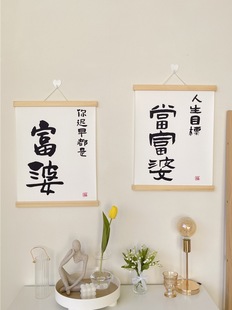 你迟早都是
富婆
人生目標
當富婆